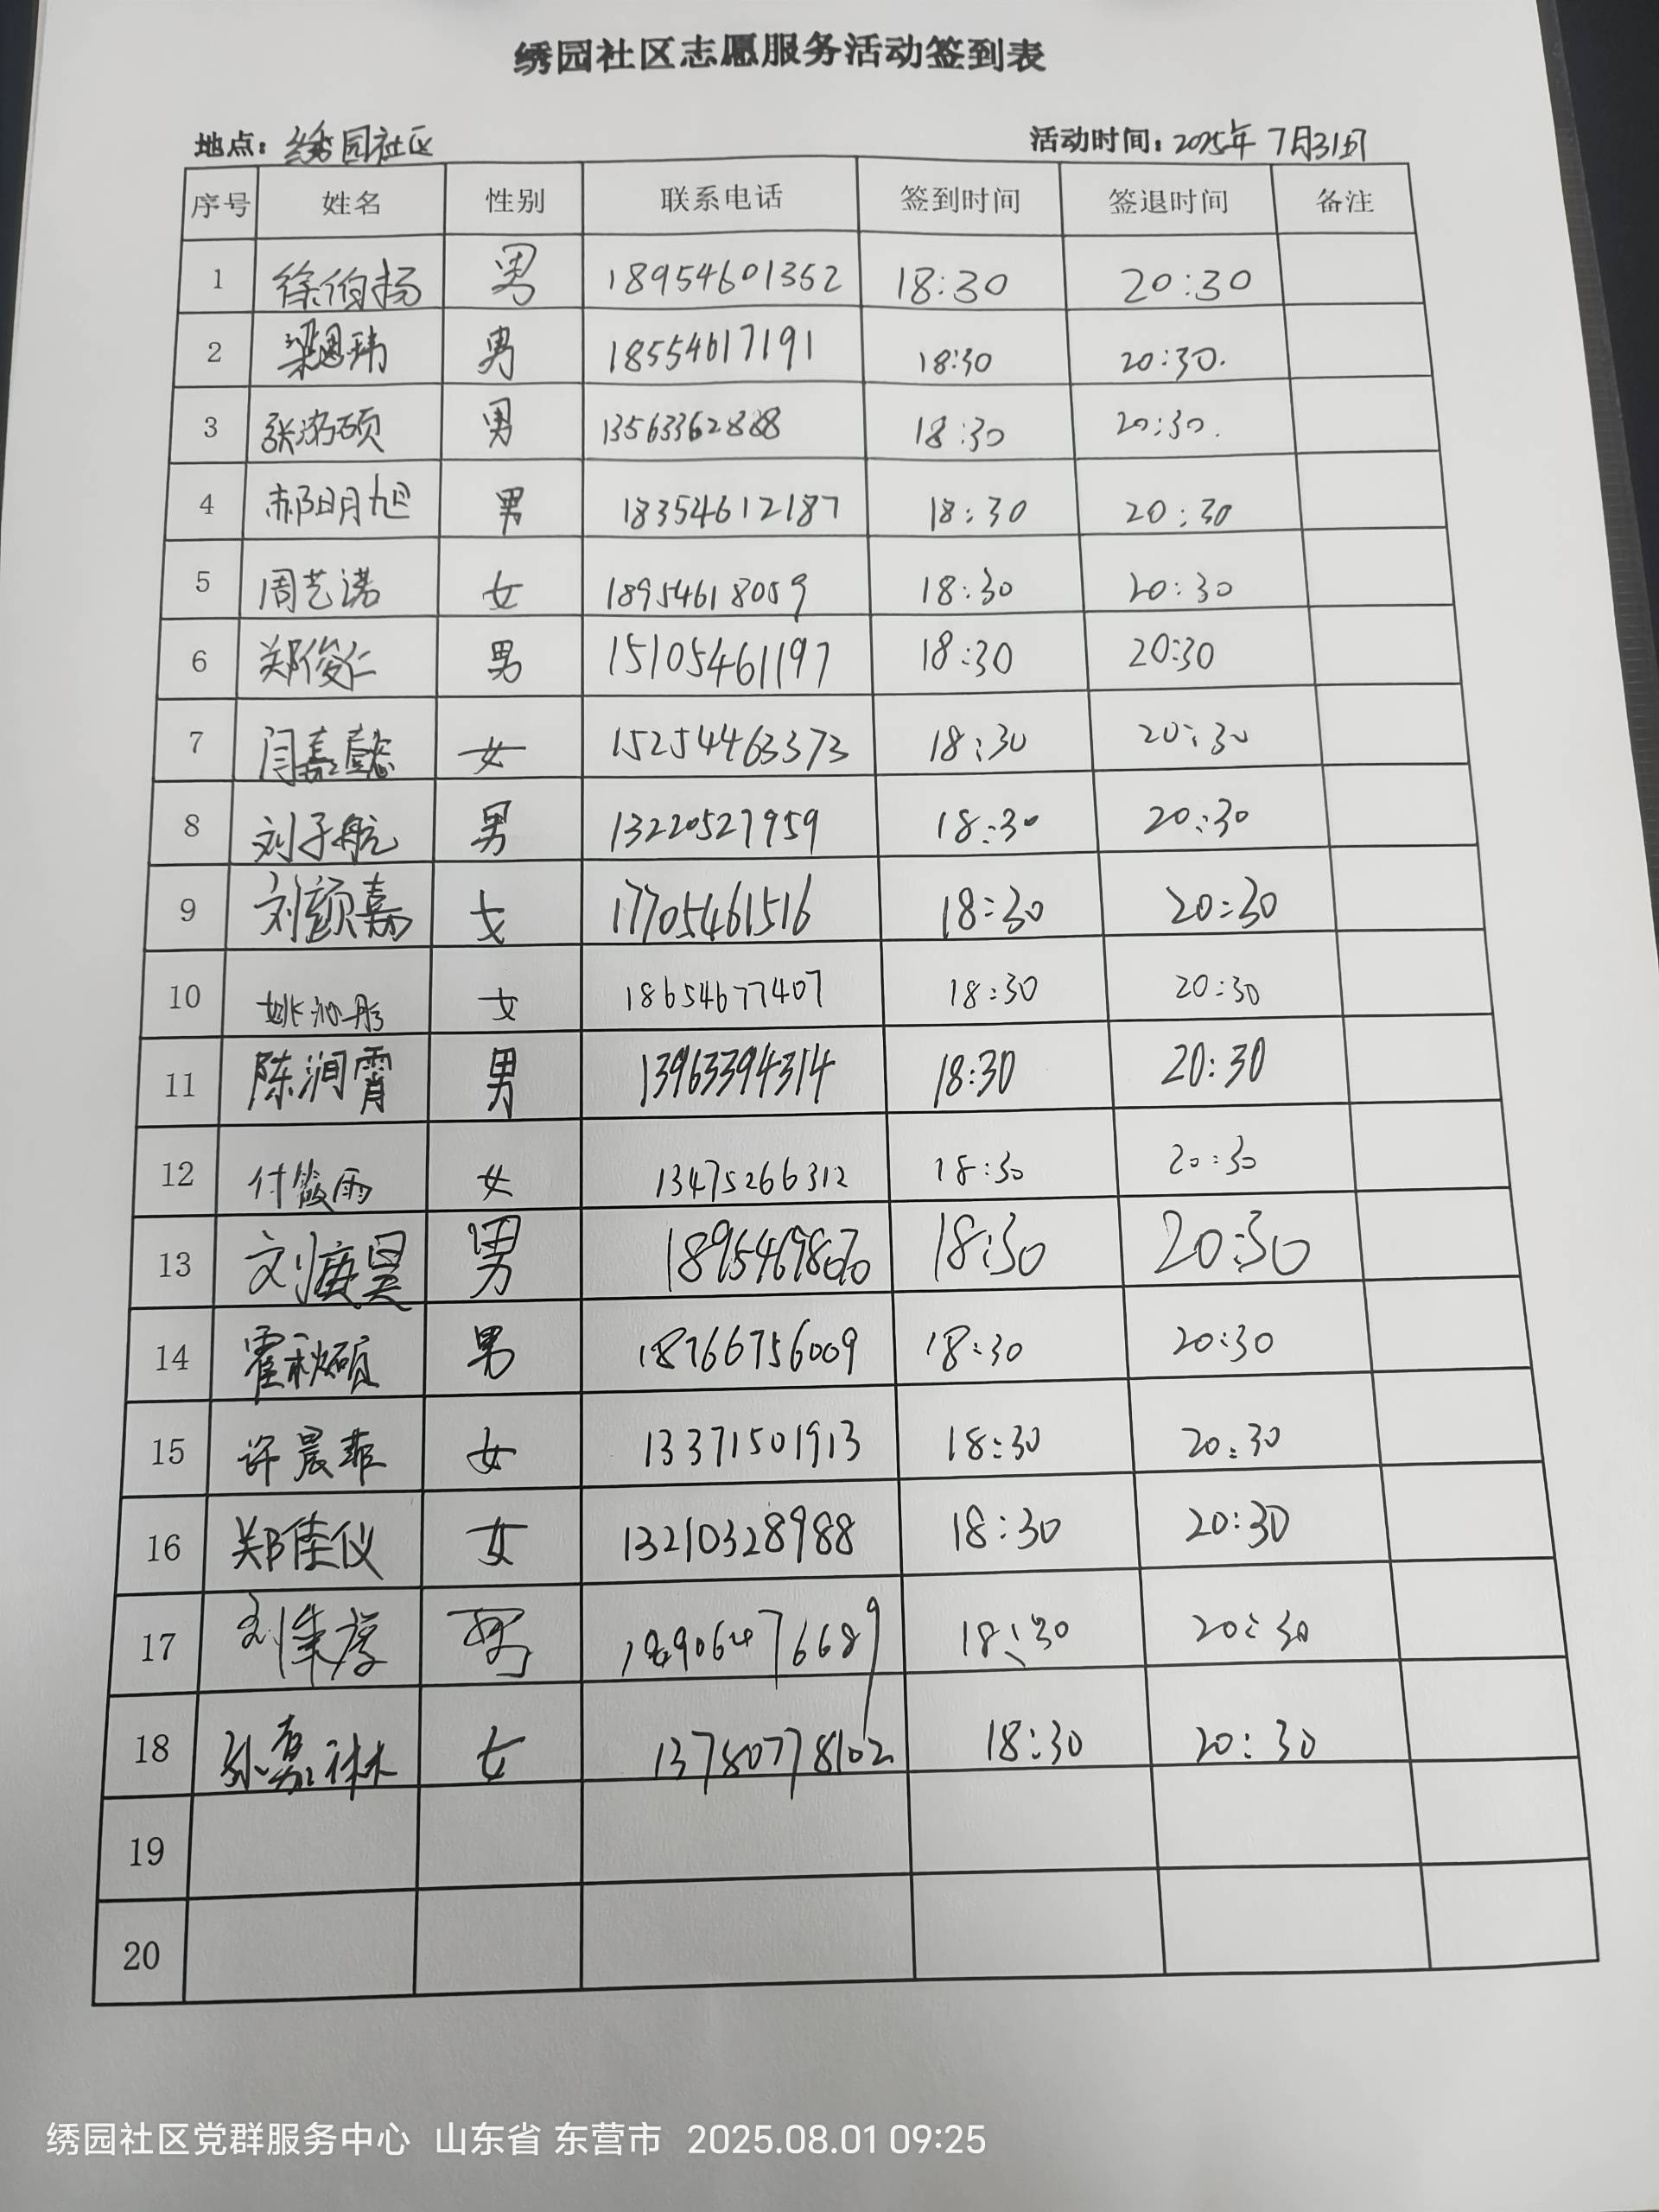 绣园社区志愿服务活动签到表
地点：绣园社区 活动时间：2025年7月31日
序号 姓名 性别 联系电话 签到时间 签退时间 备注
1 徐伯扬 男 18954601352 18:30 20:30
2 梁思玮 男 18554617191 18:30 20:30.
3 张洺硕 男 13563362888 18:30 20:30.
4 郝明旭 男 18354612187 18:30 20:30
5 周艺诺 女 18954618059 18:30 20:30
6 郑俊仁 男 15105461197 18:30 20:30
7 闫嘉懿 女 15254463373 18:30 20:30
8 刘子航 男 13220527959 18:30 20:30
9 刘颜嘉 女 17705461516 18:30 20:30
10 姚沁彤 女 18654677407 18:30 20:30
11 陈润霄 男 13963394314 18:30 20:30
12 付筱雨 女 13475266312 18:30 20:30
13 男 18:30 20:30
14 霍秋硕 男 18766756009 18:30 20:30
15 许晨菲 女 13371501913 18:30 20:30
16 郑佳仪 女 13210328988 18:30 20:30
17 男 18:30 20:30
18 孙嘉琳 女 13780778102 18:30 20:30
19
20
绣园社区党群服务中心 山东省 东营市 2025.08.01 09:25